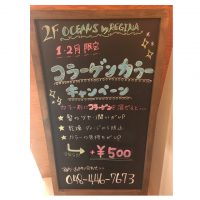 2F OCEANS by REGINA
1・2月限定
コラーゲンカラー
キャンペーン
カラー剤にコラーゲンを混ぜると…
★ 髪のツヤ・潤いがUP
★ 乾燥、ダメージから防止
★ カラーの
+¥500
048-446-7673